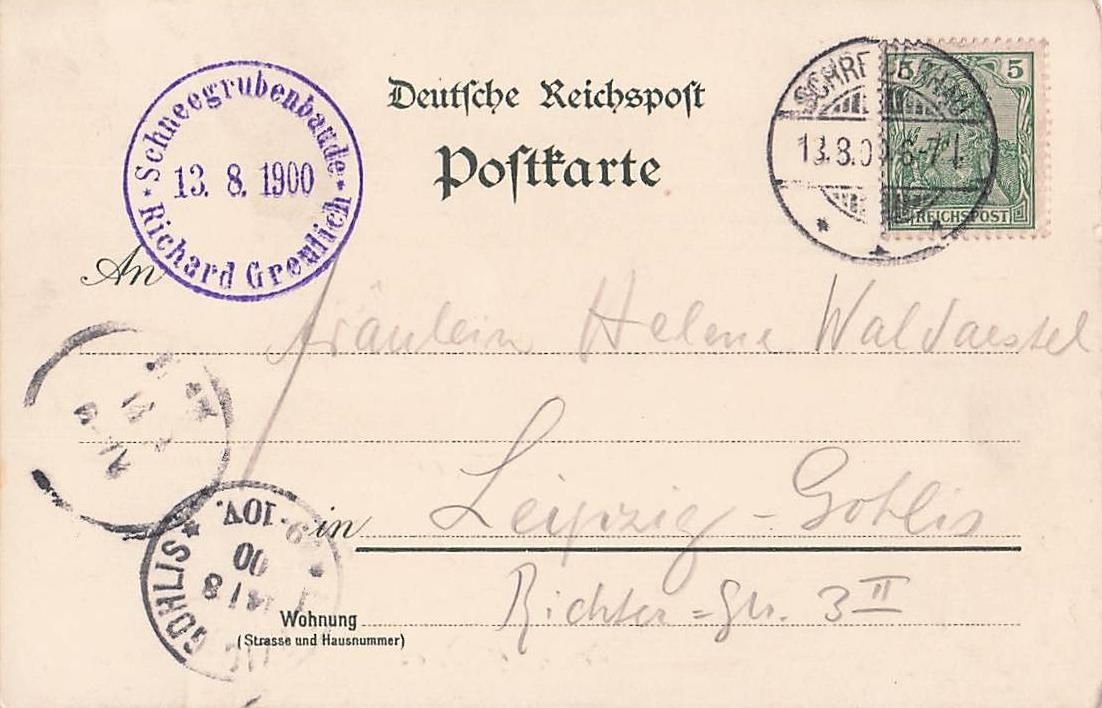 Schneegrubenbaude
13. 8. 1900
Richard Greulich
Deutsche Reichspost
Postkarte
SCHREIBERHAU
13.8.00 6-7
5 5
REICHSPOST
An
Fräulein Helene Waldaestel
in Leipzig - Gohlis
Richter = Str. 3 II
Wohnung
(Strasse und Hausnummer)
GOHLIS
9-10V.
14/8
00